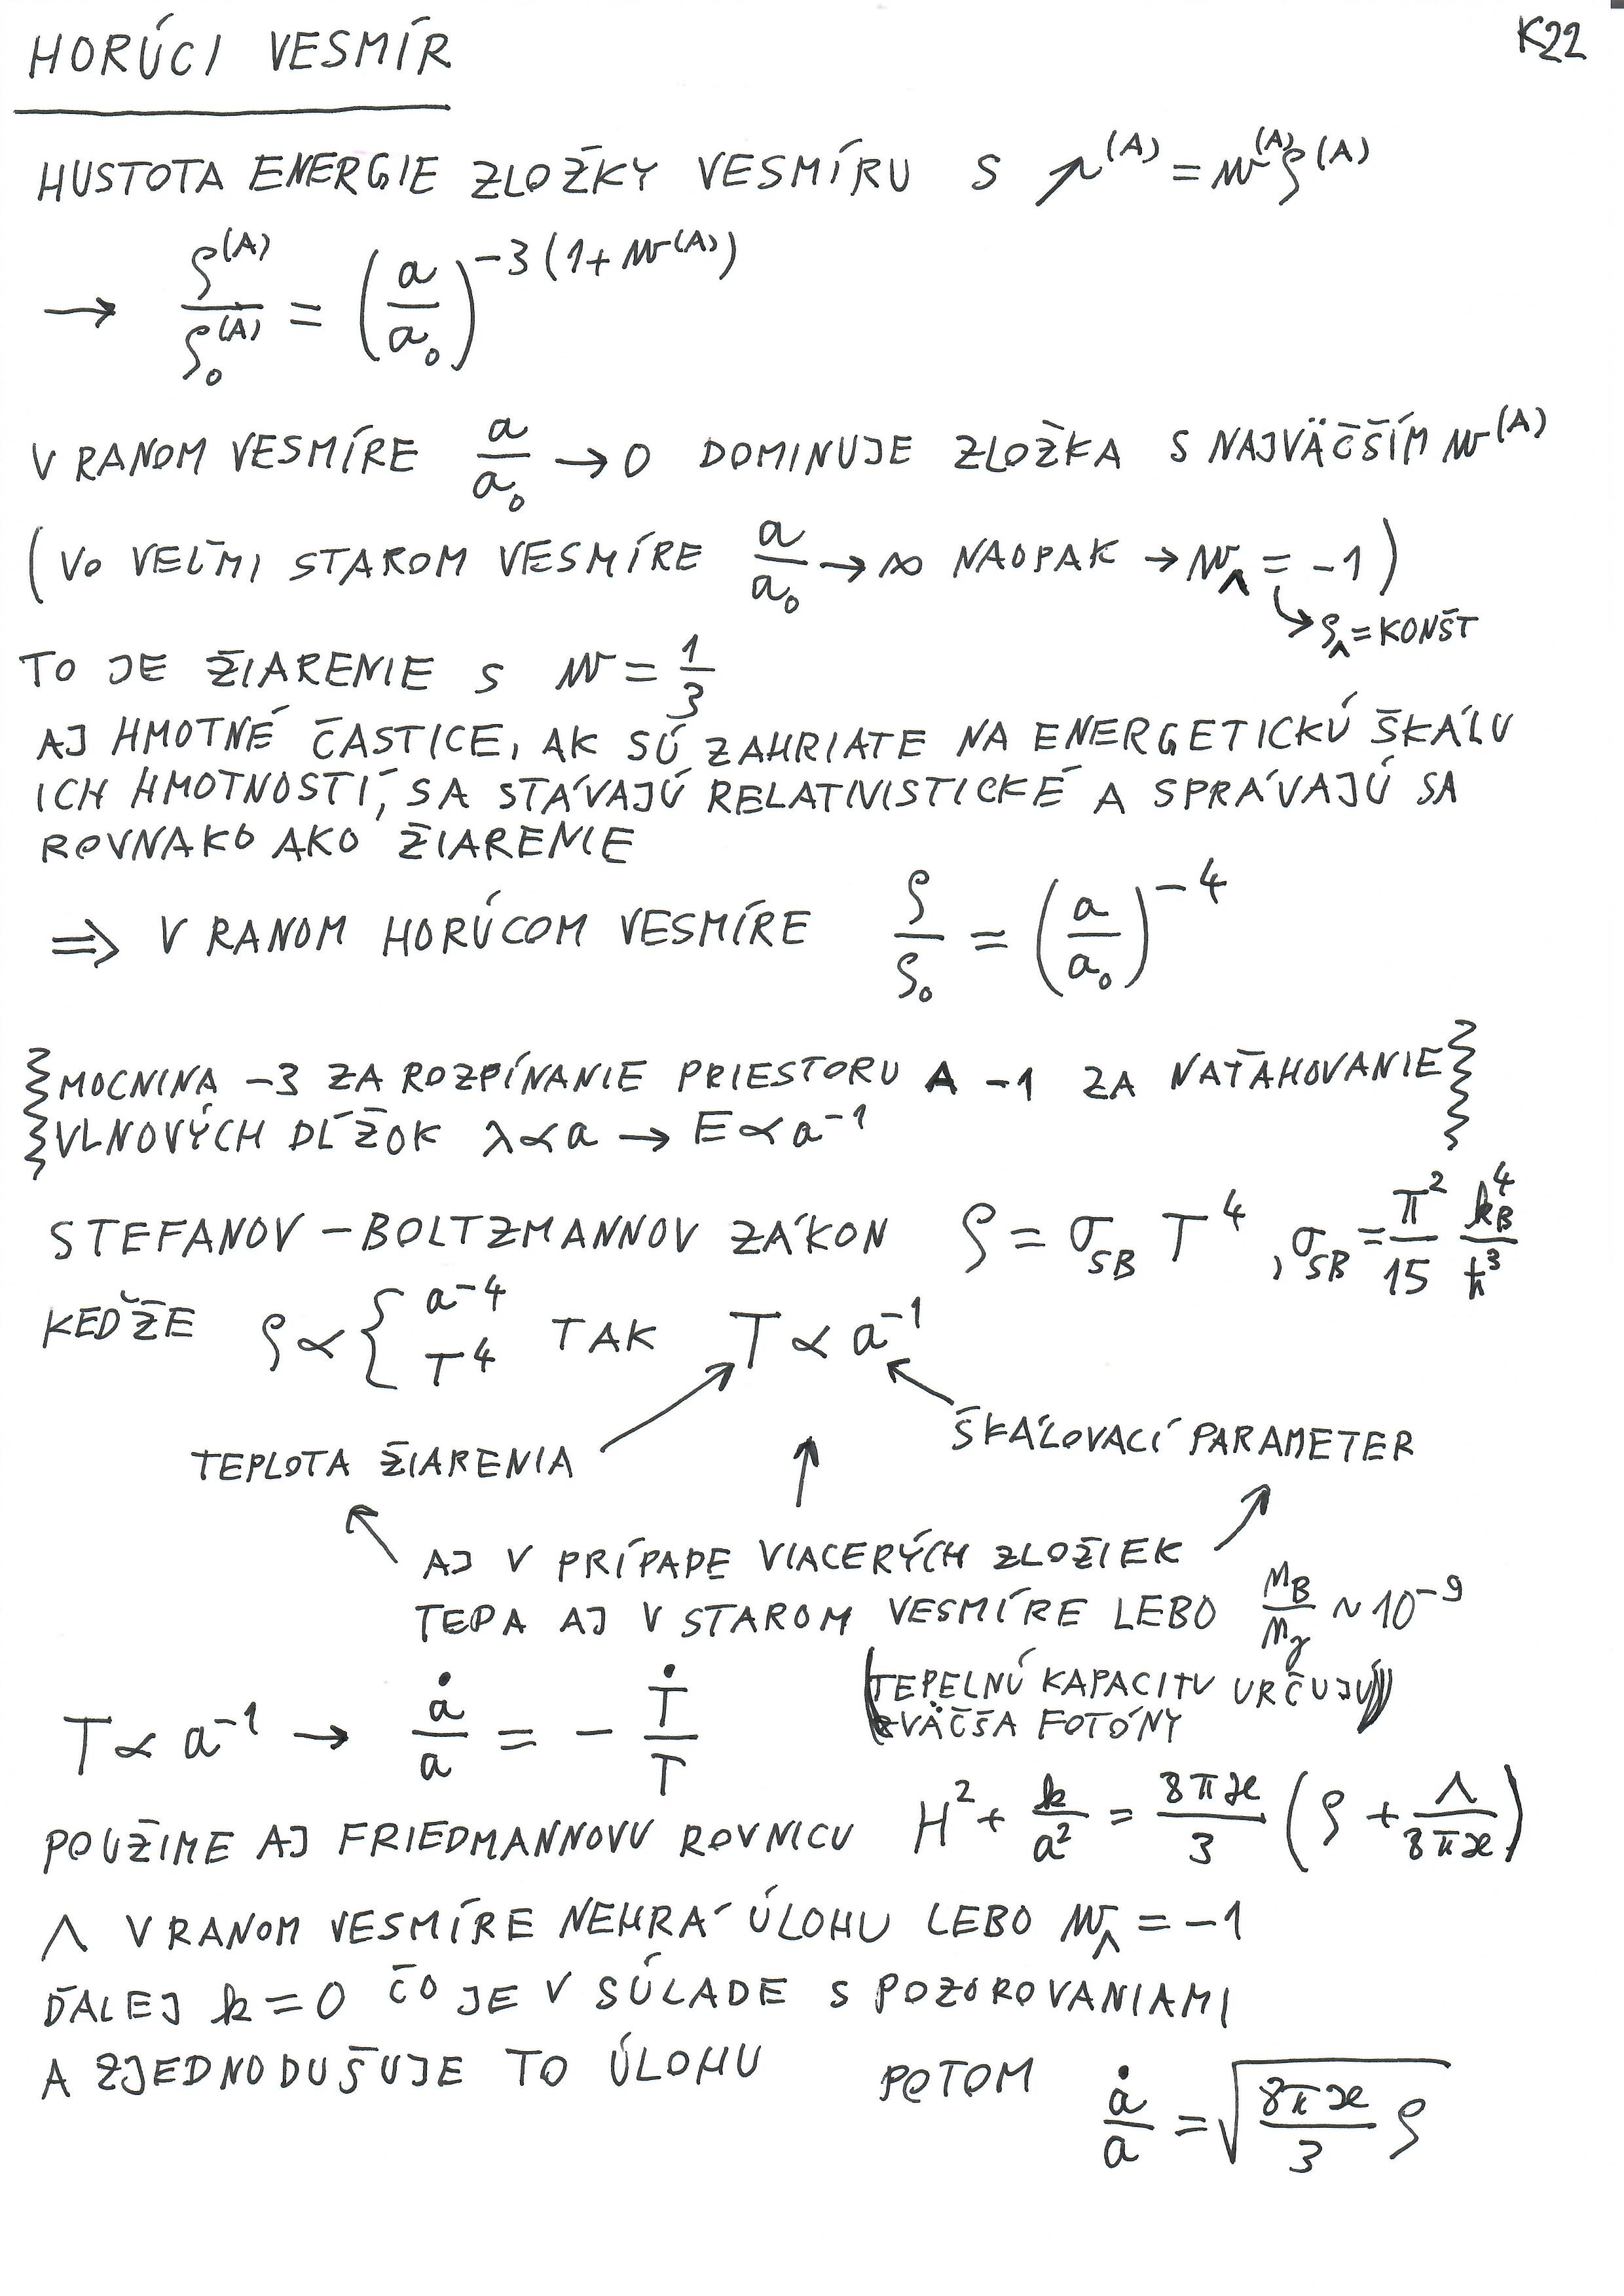 HORÚCI VESMÍR K22
HUSTOTA ENERGIE ZLOŽKY VESMÍRU S p^(A) = w^(A) ρ^(A)
→ ρ^(A) / ρ_0^(A) = (a / a_0)^(-3(1+w^(A)))
V RANOM VESMÍRE a/a_0 → 0 DOMINUJE ZLOŽKA S NAJVÄČŠÍM w^(A)
(VO VEĽMI STAROM VESMÍRE a/a_0 → ∞ NAOPAK → w_Λ = -1)
↳ ρ_Λ = KONŠT
TO JE ŽIARENIE S w = 1/3
AJ HMOTNÉ ČASTICE, AK SÚ ZAHRIATE NA ENERGETICKÚ ŠKÁLU
ICH HMOTNOSTÍ, SA STÁVAJÚ RELATIVISTICKÉ A SPRÁVAJÚ SA
ROVNAKO AKO ŽIARENIE
⇒ V RANOM HORÚCOM VESMÍRE ρ/ρ_0 = (a/a_0)^-4
MOCNINA -3 ZA ROZPÍNANIE PRIESTORU A -1 ZA NAŤAHOVANIE
VLNOVÝCH DĹŽOK λ ∝ a → E ∝ a^-1
STEFANOV - BOLTZMANNOV ZÁKON ρ = σ_SB T^4, σ_SB = π^2/15 k_B^4/ħ^3
KEĎŽE ρ ∝ { a^-4 T^4 TAK T ∝ a^-1
TEPLOTA ŽIARENIA ŠKÁLOVACÍ PARAMETER
AJ V PRÍPADE VIACERÝCH ZLOŽIEK
TEDA AJ V STAROM VESMÍRE LEBO n_B/n_γ ~ 10^-9
(TEPELNÚ KAPACITU URČUJÚ
ZVÄČŠA FOTÓNY)
T ∝ a^-1 → ȧ/a = - Ṫ/T
POUŽIME AJ FRIEDMANNOVU ROVNICU H^2 + k/a^2 = 8πϰ/3 (ρ + Λ/8πϰ)
Λ V RANOM VESMÍRE NEHRÁ ÚLOHU LEBO w_Λ = -1
ĎALEJ k = 0 ČO JE V SÚLADE S POZOROVANIAMI
A ZJEDNODUŠUJE TO ÚLOHU POTOM ȧ/a = √(8πϰ/3 ρ)